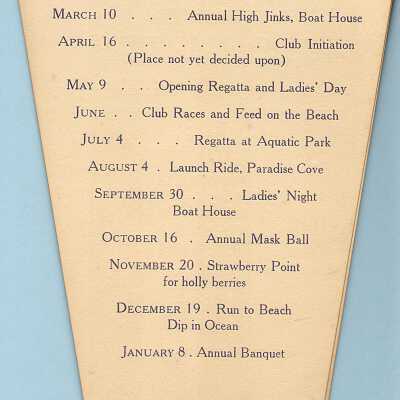 March 10 . . . Annual High Jinks, Boat House
April 16 . . . . . . . . Club Initiation
(Place not yet decided upon)
May 9 . . Opening Regatta and Ladies' Day
June . . Club Races and Feed on the Beach
July 4 . . . Regatta at Aquatic Park
August 4 . Launch Ride, Paradise Cove
September 30 . . . Ladies' Night
Boat House
October 16 . Annual Mask Ball
November 20 . Strawberry Point
for holly berries
December 19 . Run to Beach
Dip in Ocean
January 8 . Annual Banquet